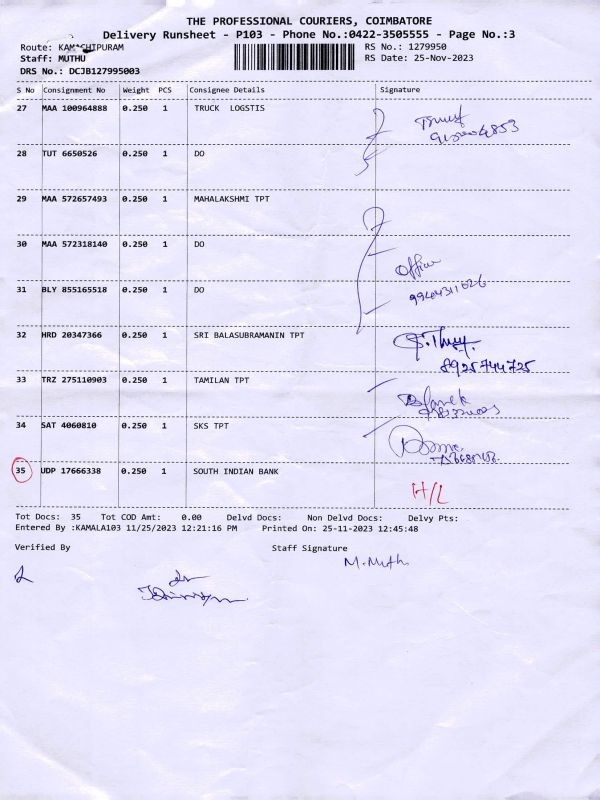 THE PROFESSIONAL COURIERS, COIMBATORE
Delivery Runsheet - P103 - Phone No.:0422-3505555 - Page No.:3
Route: KAMACHIPURAM
RS No.: 1279950
Staff: MUTHU
RS Date: 25-Nov-2023
DRS No.: DCJB127995003
S No Consignment No Weight PCS Consignee Details Signature
27 MAA 100964888 0.250 1 TRUCK LOGSTIS
28 TUT 6650526 0.250 1 DO
29 MAA 572657493 0.250 1 MAHALAKSHMI TPT
30 MAA 572318140 0.250 1 DO
Office
31 BLY 855165518 0.250 1 DO
32 HRD 20347366 0.250 1 SRI BALASUBRAMANIN TPT
8925744725
33 TRZ 275110903 0.250 1 TAMILAN TPT
34 SAT 4060810 0.250 1 SKS TPT
35 UDP 17666338 0.250 1 SOUTH INDIAN BANK
H/L
Tot Docs: 35 Tot COD Amt: 0.00 Delvd Docs: Non Delvd Docs: Delvy Pts:
Entered By :KAMALA103 11/25/2023 12:21:16 PM Printed On: 25-11-2023 12:45:48
Verified By Staff Signature
M. Muth